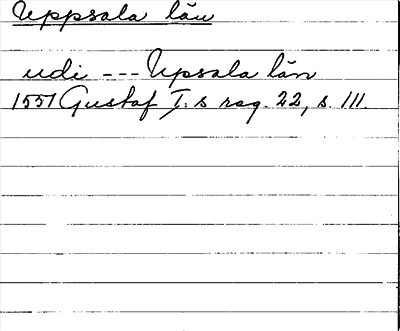 Uppsala län
udi --- Upsala län
1551 Gustaf I:s reg. 22, s. 111.